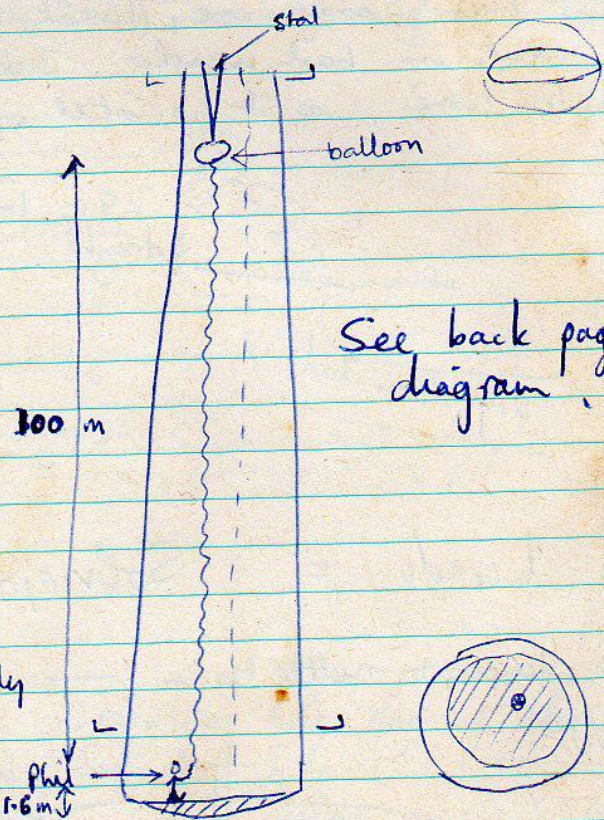 stal
balloon
See back pag
diagram!
100 m
ly
Phil
1.6m